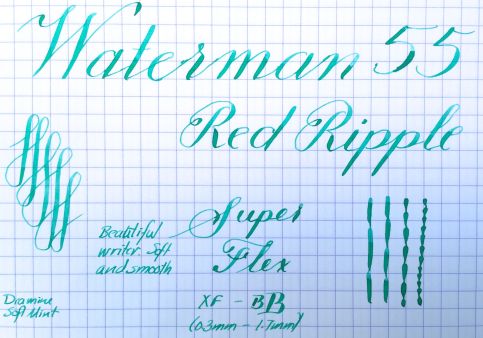 Waterman 55
Red Ripple
Super
Flex
Beautiful
writer. Soft
and smooth
XF - BB
(0.3mm - 1.7mm)
Diamine
Soft Mint